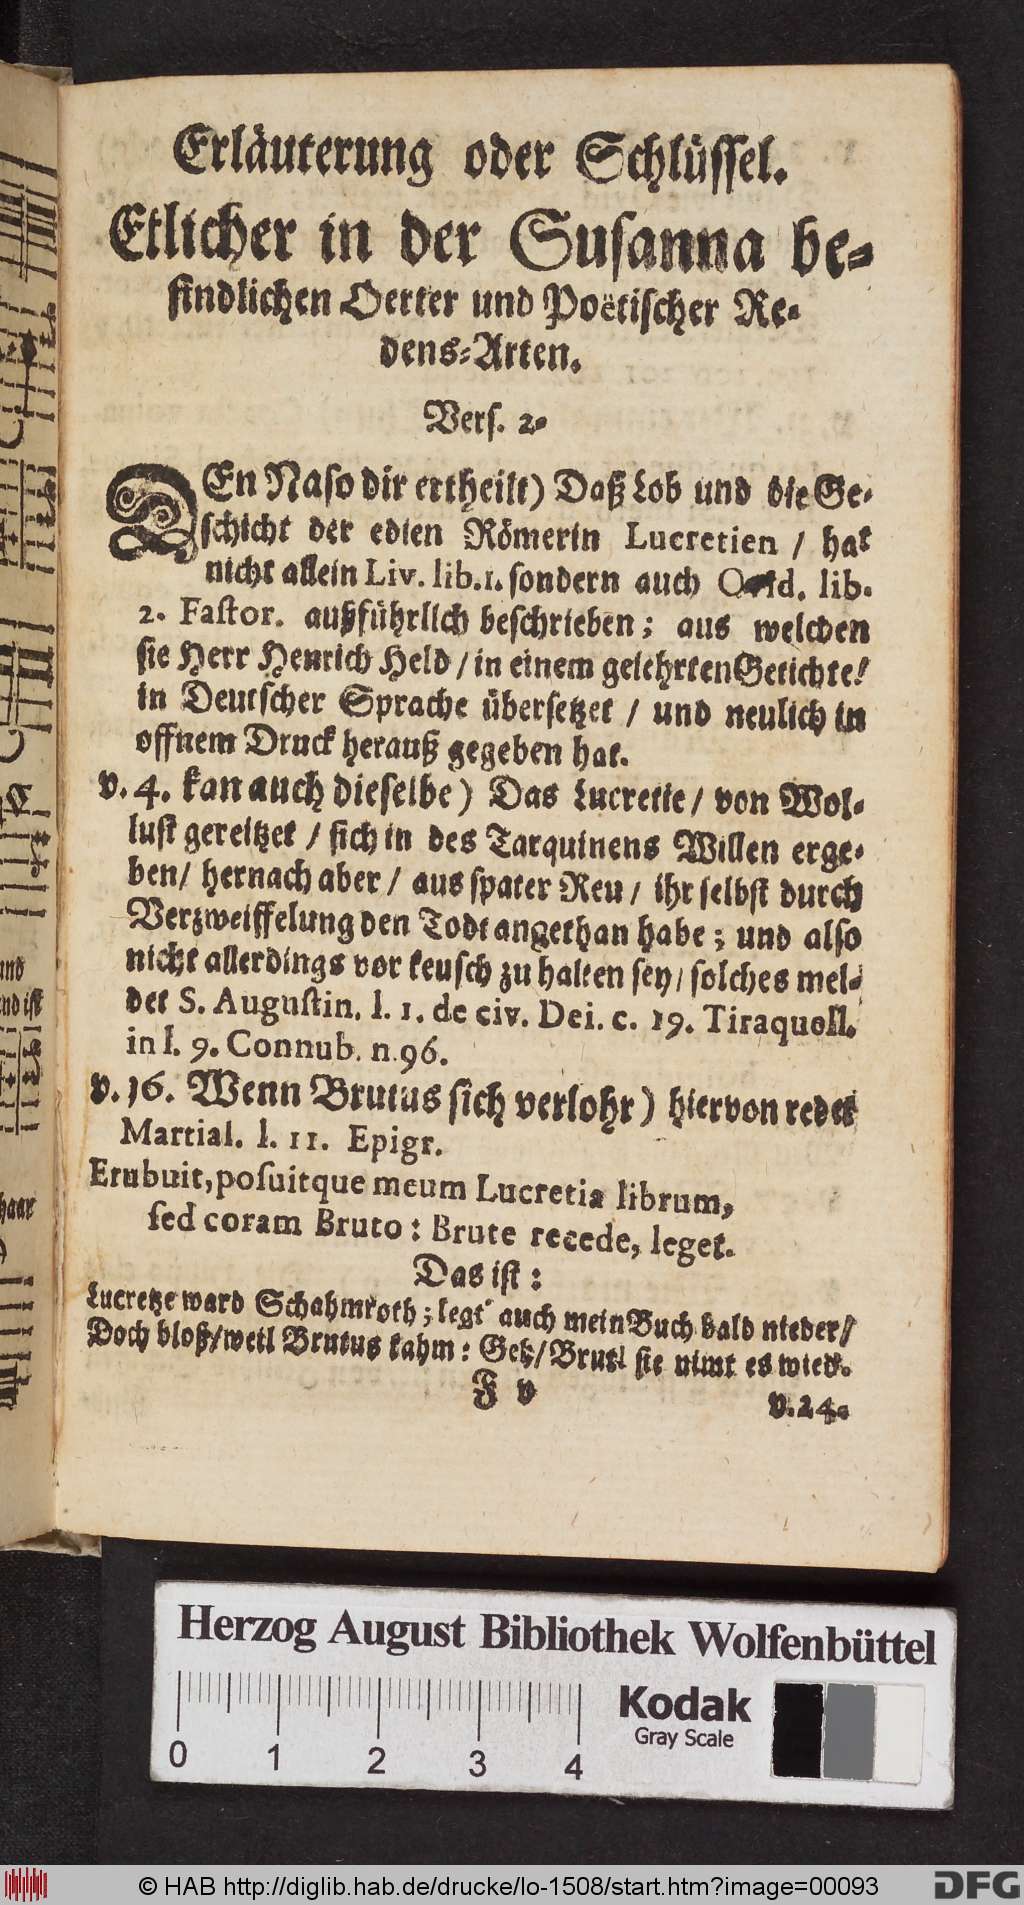 Erläuterung oder Schlüssel.
Etlicher in der Susanna be-
findlichen Oerter und Poëtischer Re-
dens-Arten.
Vers. 2.
DEn Naso dir ertheilt) Daß Lob und die Ge-
schicht der edlen Römerin Lucretien / hat
nicht allein Liv. lib. 1. sondern auch Ovid. lib.
2. Fastor. außführlich beschrieben; aus welchen
sie Herr Henrich Held / in einem gelehrten Getichte/
in Deutscher Sprache übersetzet / und neulich in
offnem Druck herauß gegeben hat.
v. 4. kan auch dieselbe) Das Lucretie / von Wol-
lust gereitzet / sich in des Tarquinens Willen erge-
ben / hernach aber / aus spater Reu / ihr selbst durch
Verzweiffelung den Todt angethan habe; und also
nicht allerdings vor keusch zu halten sey / solches mel-
det S. Augustin. l. 1. de civ. Dei. c. 19. Tiraquell.
in l. 9. Connub. n. 96.
v. 16. Wenn Brutus sich verlohr) hiervon redet
Martial. l. 11. Epigr.
Erubuit, posuitque meum Lucretia librum,
sed coram Bruto: Brute recede, leget.
Das ist:
Lucretze ward Schahmroth; legt' auch mein Buch bald nieder/
Doch bloß/weil Brutus kahm: Geh/Brut! sie nimt es wied.
F v
v. 24.
und
nd ist
haar
Herzog August Bibliothek Wolfenbüttel
Kodak
Gray Scale
0 1 2 3 4
© HAB http://diglib.hab.de/drucke/lo-1508/start.htm?image=00093
DFG